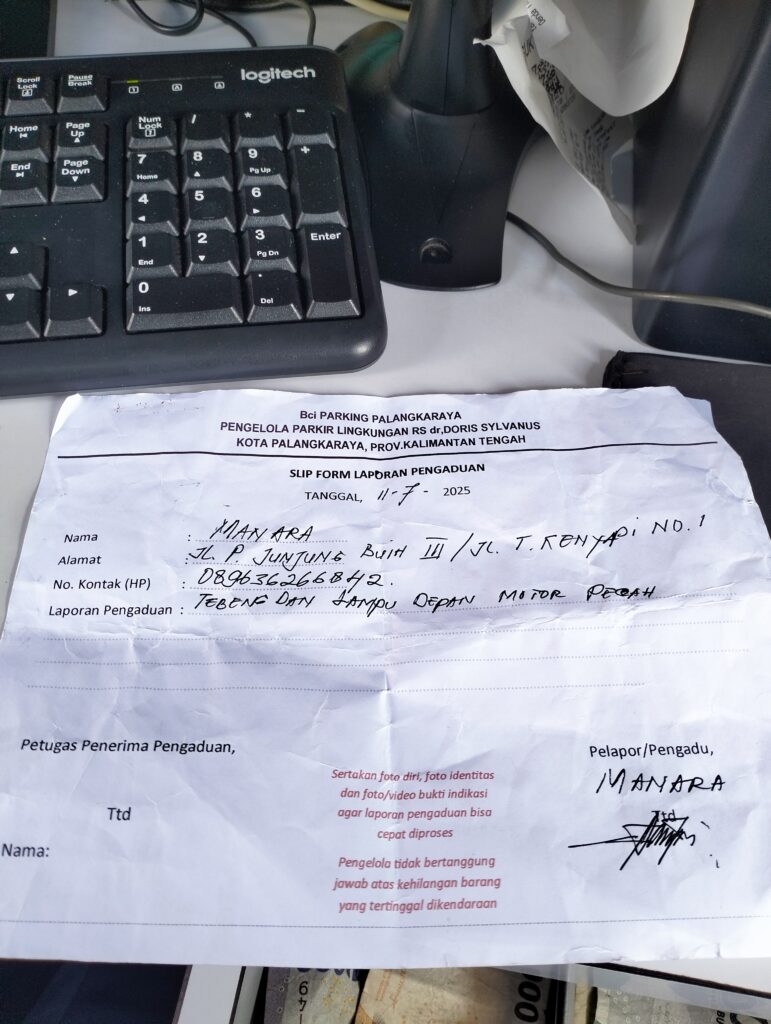 logitech
Scroll Lock
Pause Break
1
A
A
Home
Page Up
Num Lock
/
*
-
7 Home
8
9 Pg Up
+
End
Page Down
4
5
6
1 End
2
3 Pg Dn
Enter
0 Ins
. Del
Bci PARKING PALANGKARAYA
PENGELOLA PARKIR LINGKUNGAN RS dr,DORIS SYLVANUS
KOTA PALANGKARAYA, PROV.KALIMANTAN TENGAH
SLIP FORM LAPORAN PENGADUAN
TANGGAL, 11-7- 2025
Nama : MANARA
Alamat : JL. P. JUNJUNG BUIH III / JL. T. KENYAPI NO. 1
No. Kontak (HP) : 089636266842.
Laporan Pengaduan : TEBENG DAN LAMPU DEPAN MOTOR PECAH
Petugas Penerima Pengaduan,
Pelapor/Pengadu,
MANARA
Sertakan foto diri, foto identitas
dan foto/video bukti indikasi
agar laporan pengaduan bisa
cepat diproses
Ttd
Ttd
Nama:
Pengelola tidak bertanggung
jawab atas kehilangan barang
yang tertinggal dikendaraan